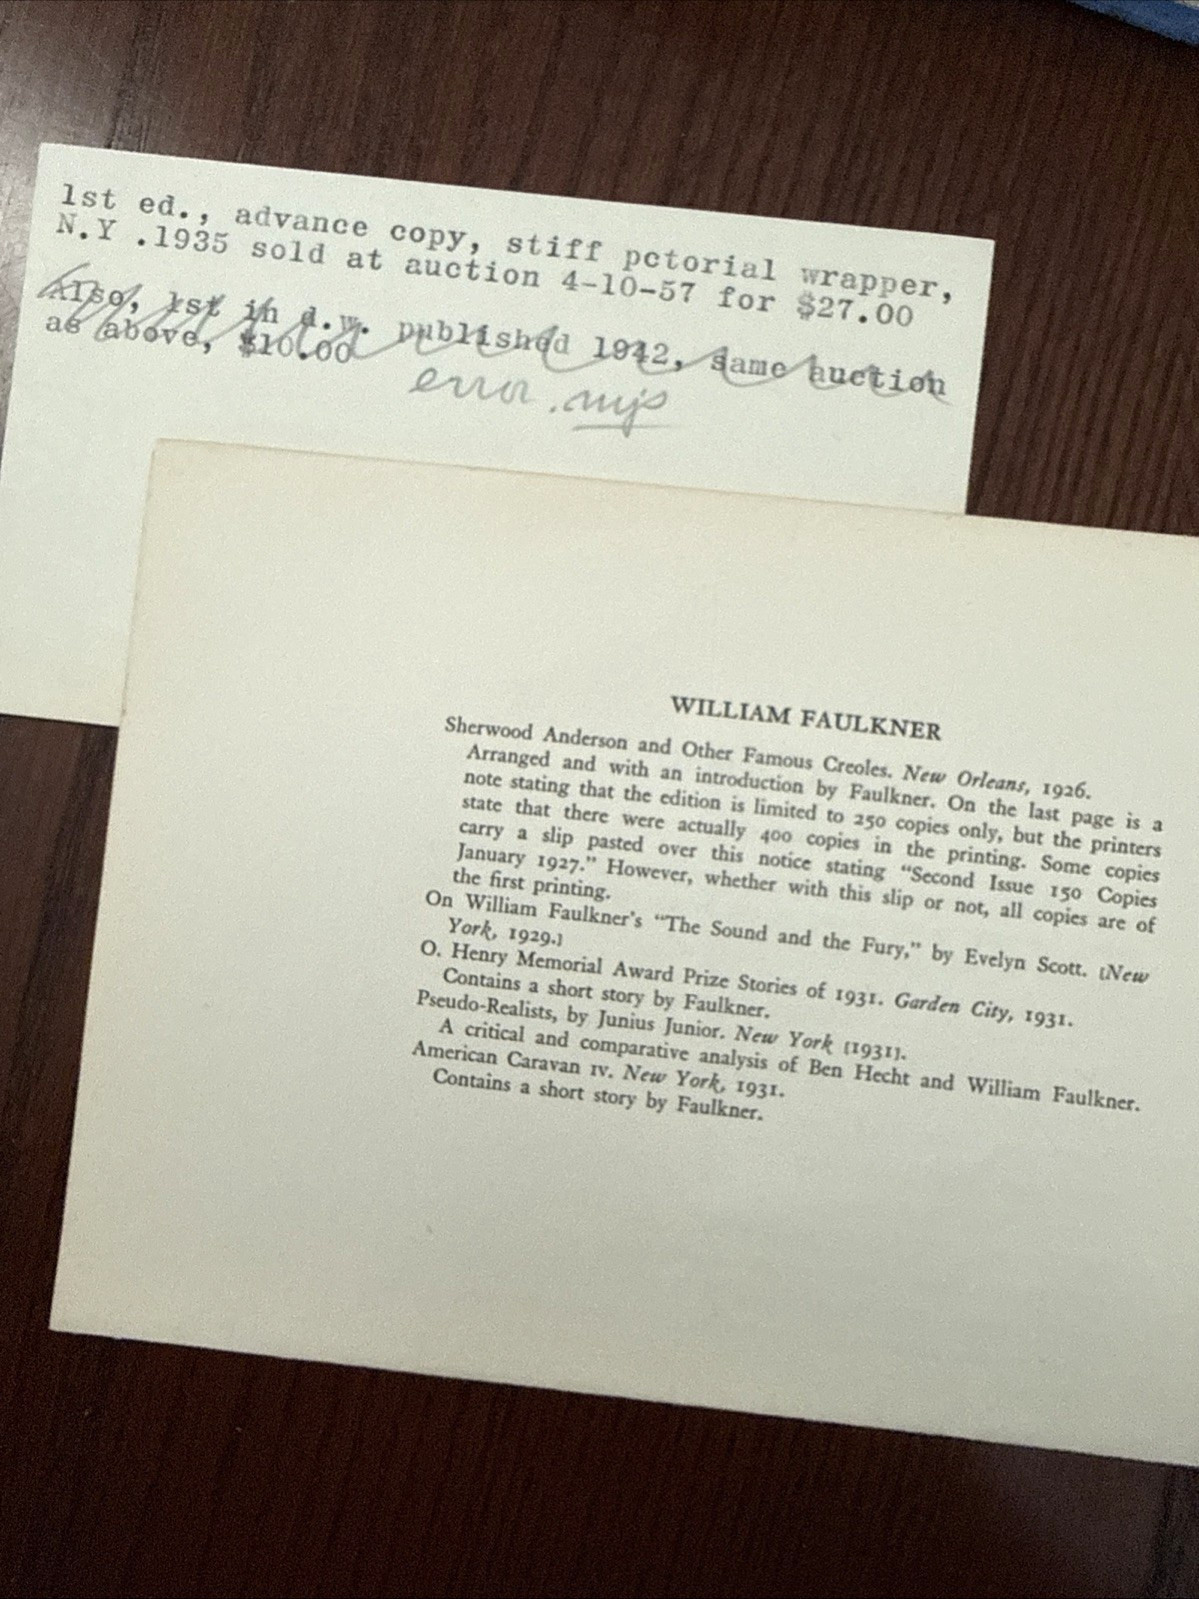 1st ed., advance copy, stiff pctorial wrapper,
N.Y .1935 sold at auction 4-10-57 for $27.00
Also, 1st in d.w. published 1942, same auction
as above, $10.00
error. mjs
WILLIAM FAULKNER
Sherwood Anderson and Other Famous Creoles. New Orleans, 1926.
Arranged and with an introduction by Faulkner. On the last page is a
note stating that the edition is limited to 250 copies only, but the printers
state that there were actually 400 copies in the printing. Some copies
carry a slip pasted over this notice stating "Second Issue 150 Copies
January 1927." However, whether with this slip or not, all copies are of
the first printing.
On William Faulkner's "The Sound and the Fury," by Evelyn Scott. [New
York, 1929.]
O. Henry Memorial Award Prize Stories of 1931. Garden City, 1931.
Contains a short story by Faulkner.
Pseudo-Realists, by Junius Junior. New York [1931].
A critical and comparative analysis of Ben Hecht and William Faulkner.
American Caravan IV. New York, 1931.
Contains a short story by Faulkner.